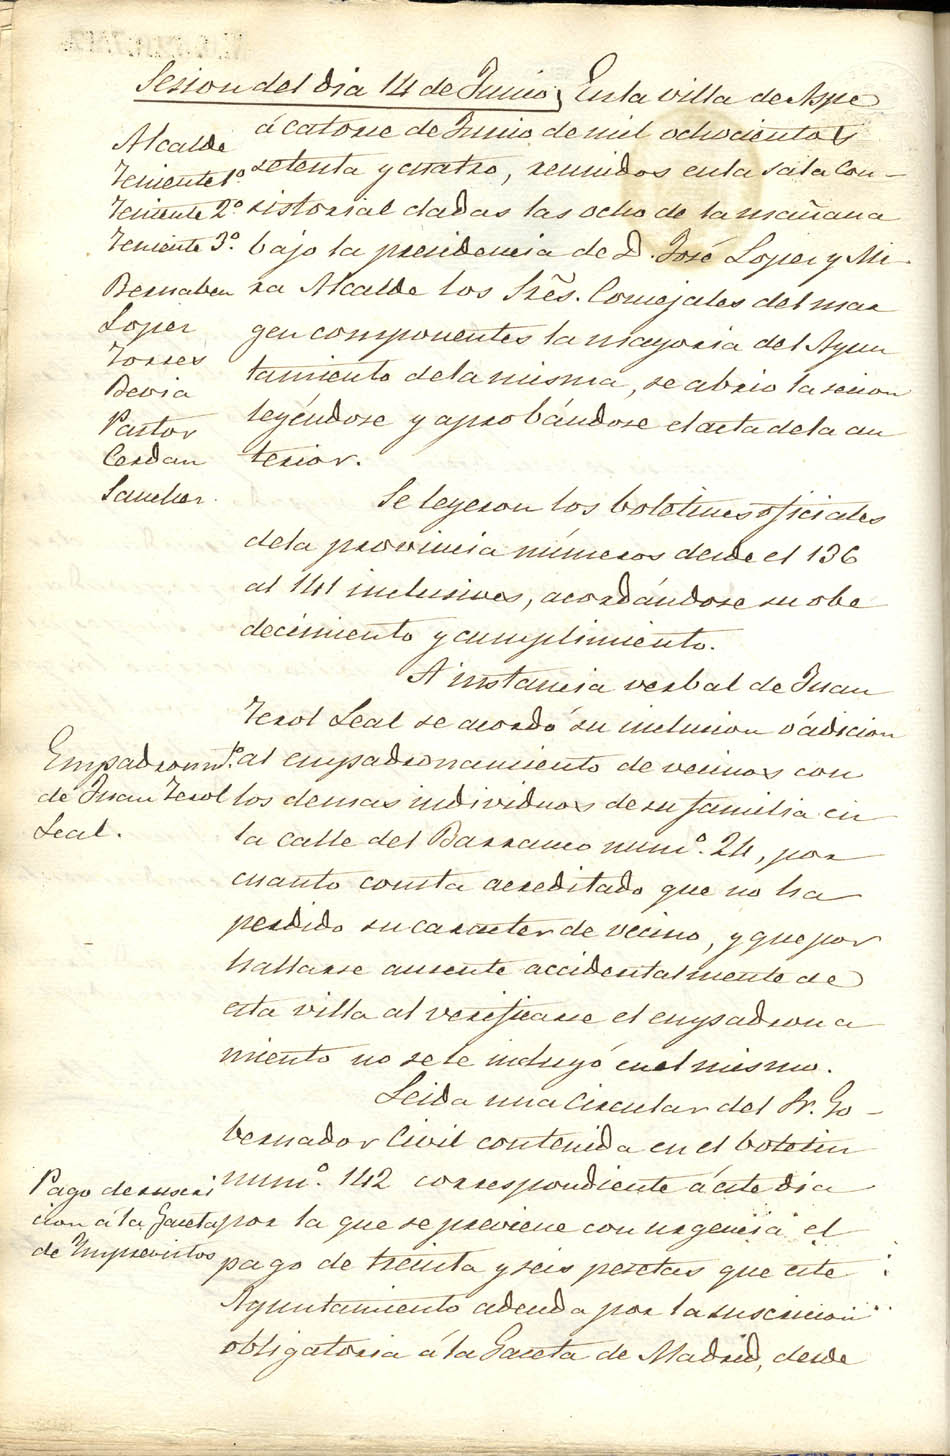 Sesion del dia 14 de Junio } En la villa de Aspe
á catorse de Junio de mil ochocientos
setenta y cuatro, reunidos en la sala Con-
sistorial dadas las ocho de la mañana
bajo la presidencia de D. José Lopez y Mi-
ra Alcalde los Srẽs. Concejales del mar
gen componentes la mayoria del Ayun
tamiento de la misma, se abrio la sesion
leyéndose y aprobándose el acta de la an
terior.
Alcalde
Teniente 1º
Teniente 2º
Teniente 3º.
Bernabeu
Lopez
Torres
Bevia
Pastor
Cerdan
Sanchez.
Se leyeron los boletines oficiales
de la provincia números desde el 136
al 141 inclusives, acordándose su obe
decimiento y cumplimiento.
A instancia verbal de Juan
Terol Leal se acordó su inclusion ó adicion
al empadronamiento de vecinos con
los demas individuos de su familia en
la calle del Barranco numº. 24, por
cuanto consta acreditado que no ha
perdido su caracter de vecino, y que por
hallarse ausente accidentalmente de
esta villa al verificarse el empadrona
miento no se le incluyó en el mismo.
Empadronamtº.
de Juan Terol
Leal.
Leida una Circular del Sr. Go-
bernador Civil contenida en el boletin
numº. 142 correspondiente á este dia
por la que se previene con urgencia el
pago de treinta y seis pesetas que este
Ayuntamiento adeuda por la suscricion
obligatoria á la Gaceta de Madrid, desde
Pago de suscri
cion á la Gaceta
de Imprevistos